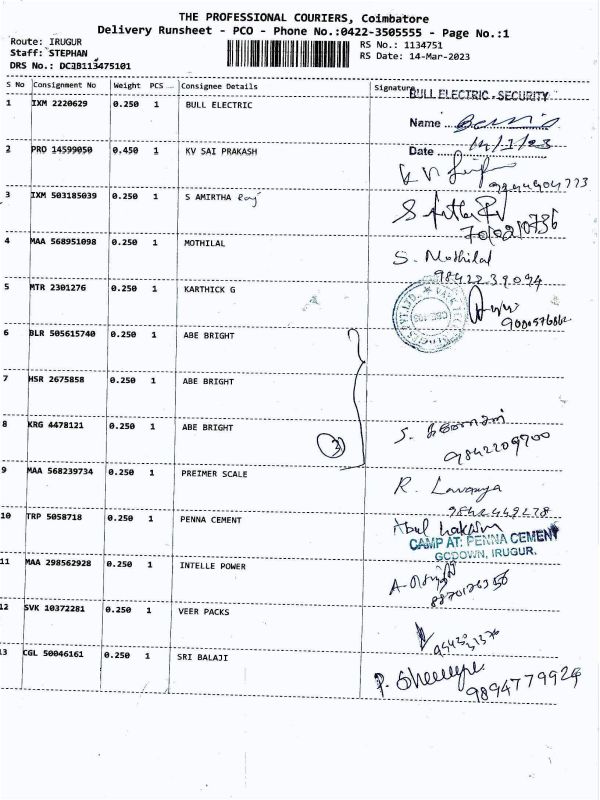 THE PROFESSIONAL COURIERS, Coimbatore
Delivery Runsheet - PCO - Phone No.:0422-3505555 - Page No.:1
Route: IRUGUR
Staff: STEPHAN
DRS No.: DCJB113475101
RS No.: 1134751
RS Date: 14-Mar-2023
S No Consignment No Weight PCS Consignee Details Signature
BULL ELECTRIC - SECURITY
1 IXM 2220629 0.250 1 BULL ELECTRIC
Name
Date
2 PRO 14599050 0.450 1 KV SAI PRAKASH
3 IXM 503185039 0.250 1 S AMIRTHA Raj
4 MAA 568951098 0.250 1 MOTHILAL S. Mothilal
5 MTR 2301276 0.250 1 KARTHICK G
6 BLR 505615740 0.250 1 ABE BRIGHT
7 HSR 2675858 0.250 1 ABE BRIGHT
8 KRG 4478121 0.250 1 ABE BRIGHT
3
9842209700
9 MAA 568239734 0.250 1 PREIMER SCALE R. Lavanya
10 TRP 5058718 0.250 1 PENNA CEMENT
CAMP AT: PENNA CEMENT
GODOWN, IRUGUR.
11 MAA 298562928 0.250 1 INTELLE POWER
12 SVK 10372281 0.250 1 VEER PACKS
13 CGL 50046161 0.250 1 SRI BALAJI
9894779924